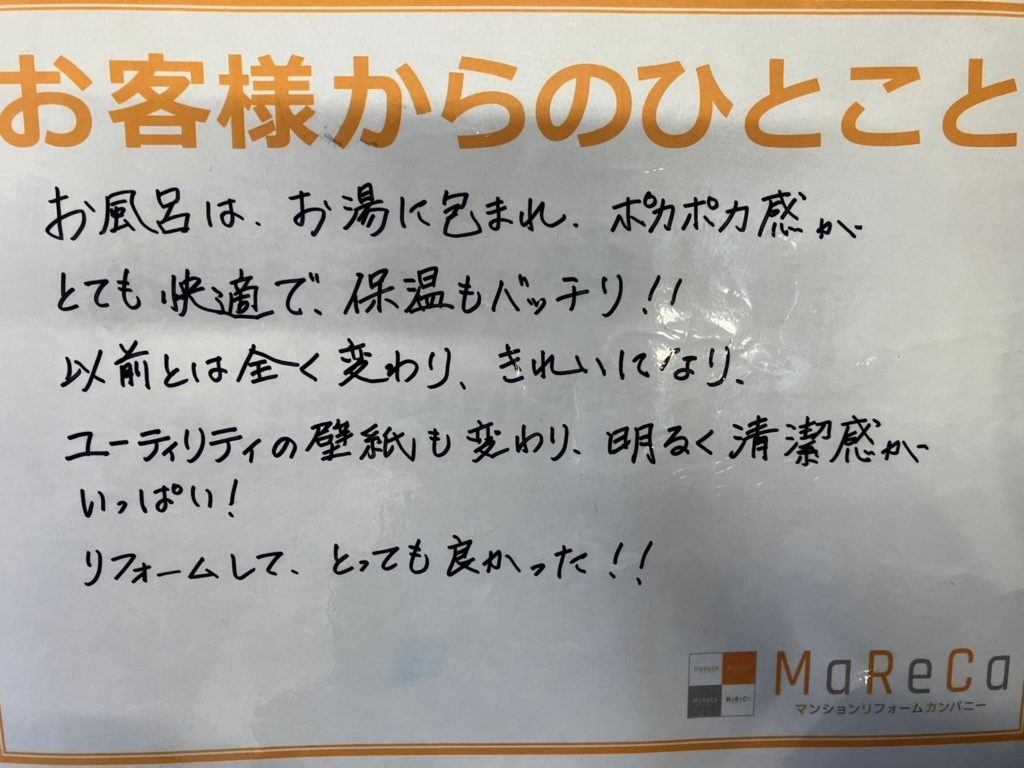 お客様からのひとこと
お風呂は、お湯に包まれ、ポカポカ感が
とても快適で、保温もバッチリ!!
以前とは全く変わり、きれいになり、
ユーティリティの壁紙も変わり、明るく清潔感が
いっぱい!
リフォームして、とっても良かった!!
MaReCa
マンションリフォームカンパニー